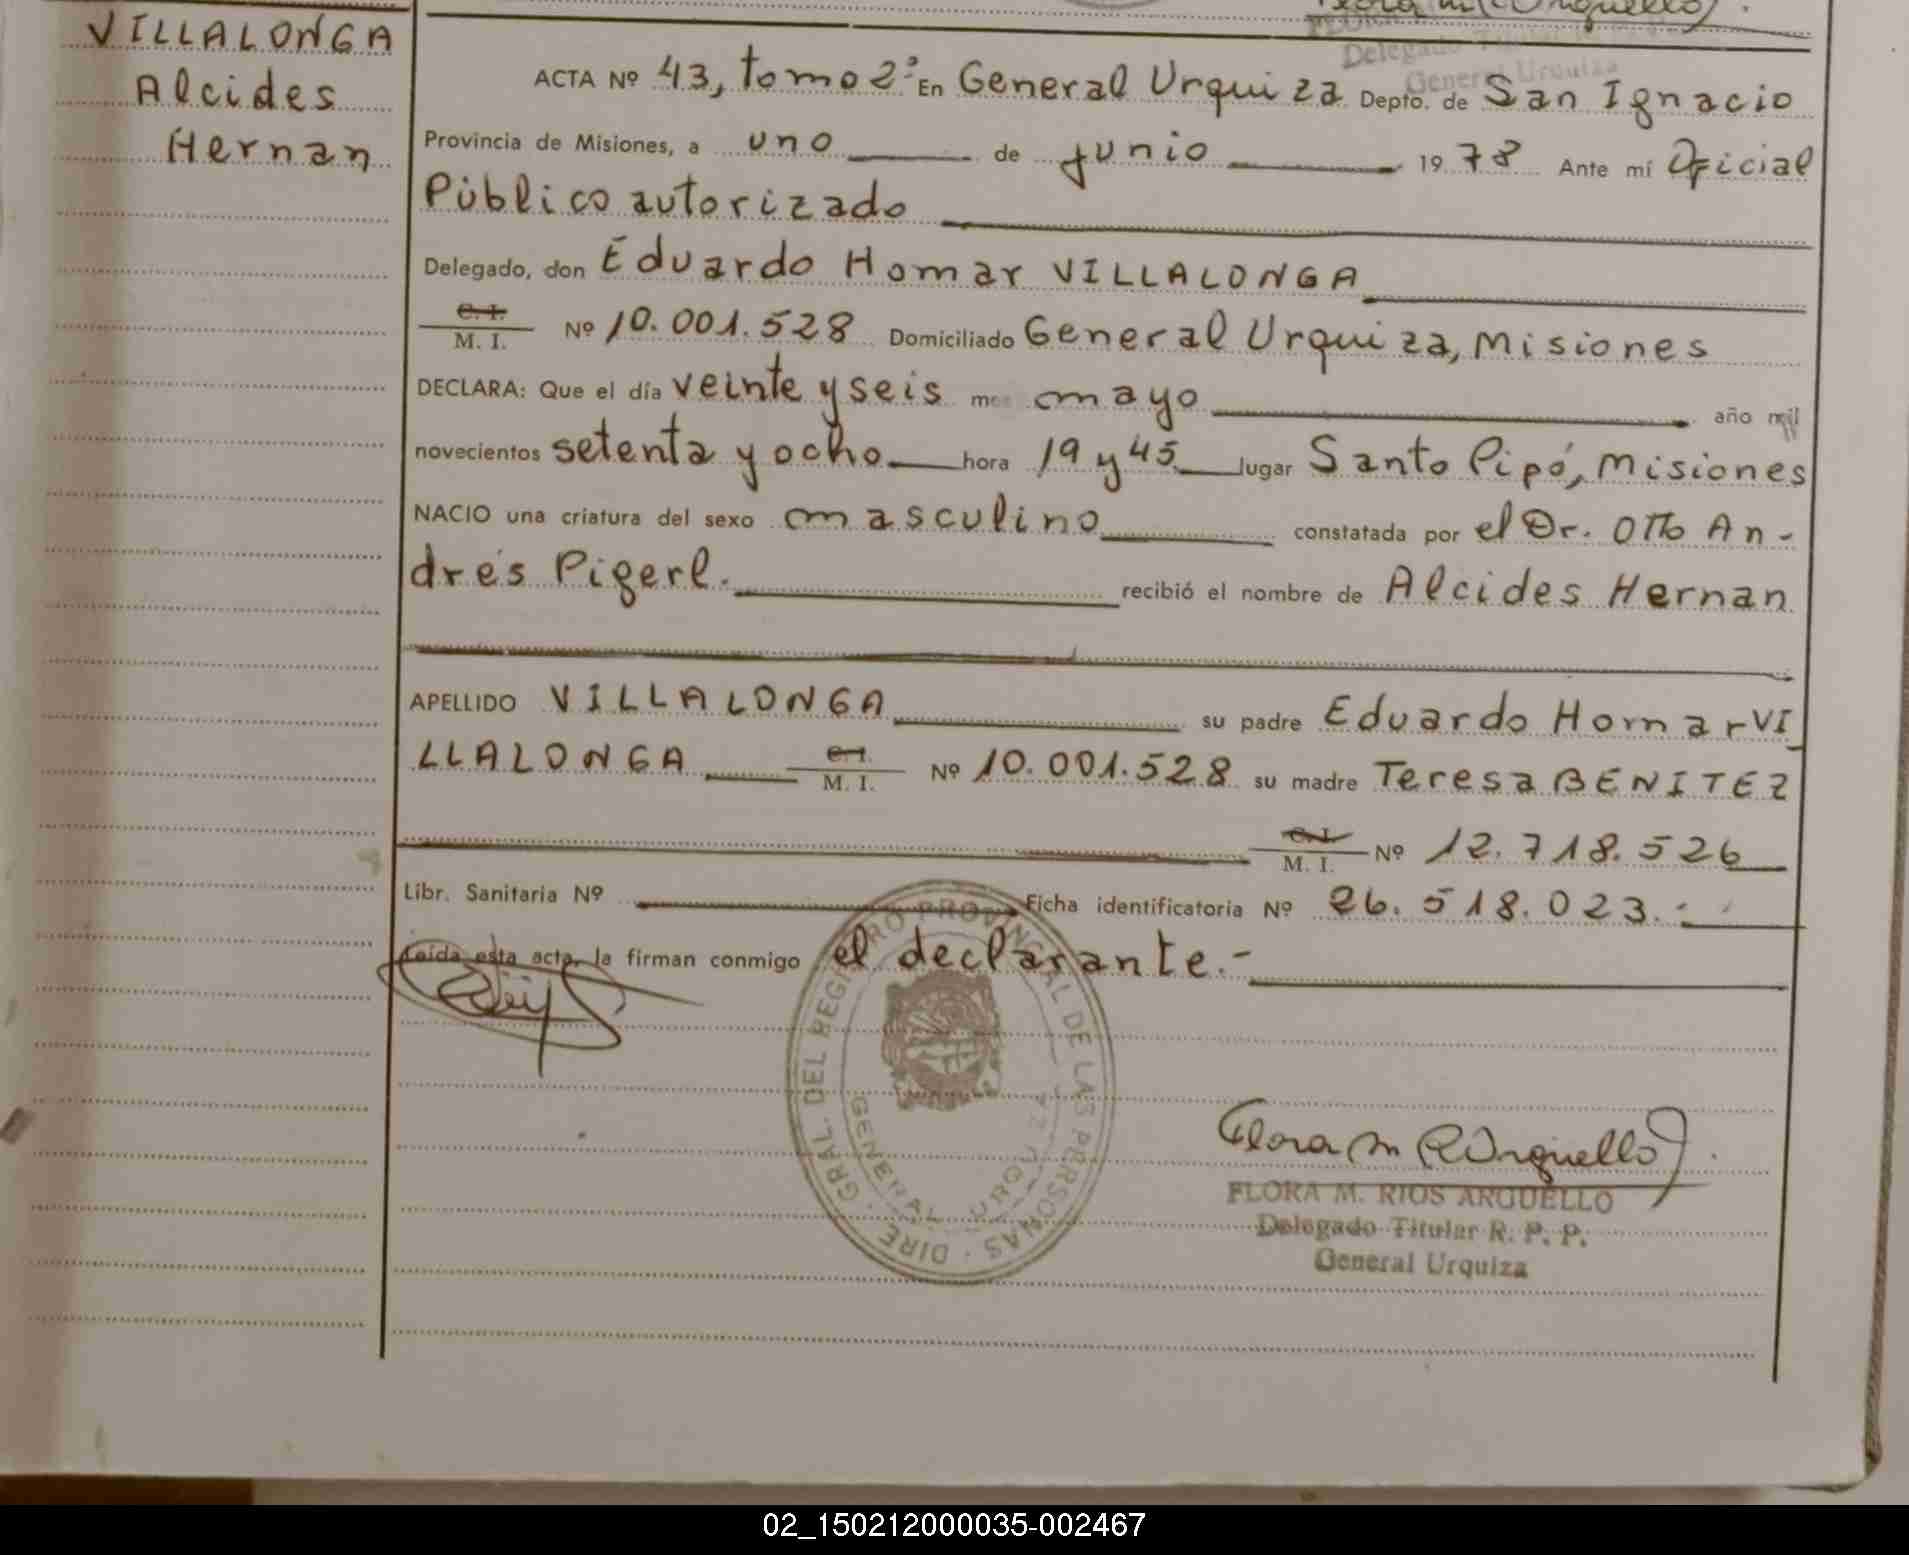 VILLALONGA
Alcides
Hernan
Delegado Titular
General Urquiza
ACTA Nº 43, tomo 2º En General Urquiza Depto. de San Ignacio
Provincia de Misiones, a uno de junio 19 78 Ante mí Oficial
Público autorizado
Delegado, don Eduardo Homar VILLALONGA
C. I.
M. I. Nº 10.001.528 Domiciliado General Urquiza, Misiones
DECLARA: Que el día veinte y seis mes mayo año mil
novecientos setenta y ocho hora 19 y 45 lugar Santo Pipó, Misiones
NACIO una criatura del sexo masculino constatada por el Dr. Otto An-
drés Pigerl. recibió el nombre de Alcides Hernan
APELLIDO VILLALONGA su padre Eduardo Homar VI
LLALONGA C. I. M. I. Nº 10.001.528 su madre Teresa BENITEZ
C. I. M. I. Nº 12.718.526
Libr. Sanitaria Nº Ficha identificatoria Nº 26.518.023.-
Leída esta acta, la firman conmigo el declarante.-
DIRE. GRAL. DEL REGISTRO PROVINCIAL DE LAS PERSONAS
GENERAL URQUIZA
Flora M R Arguello
FLORA M. RIOS ARGUELLO
Delegado Titular R. P. P.
General Urquiza
02_150212000035-002467